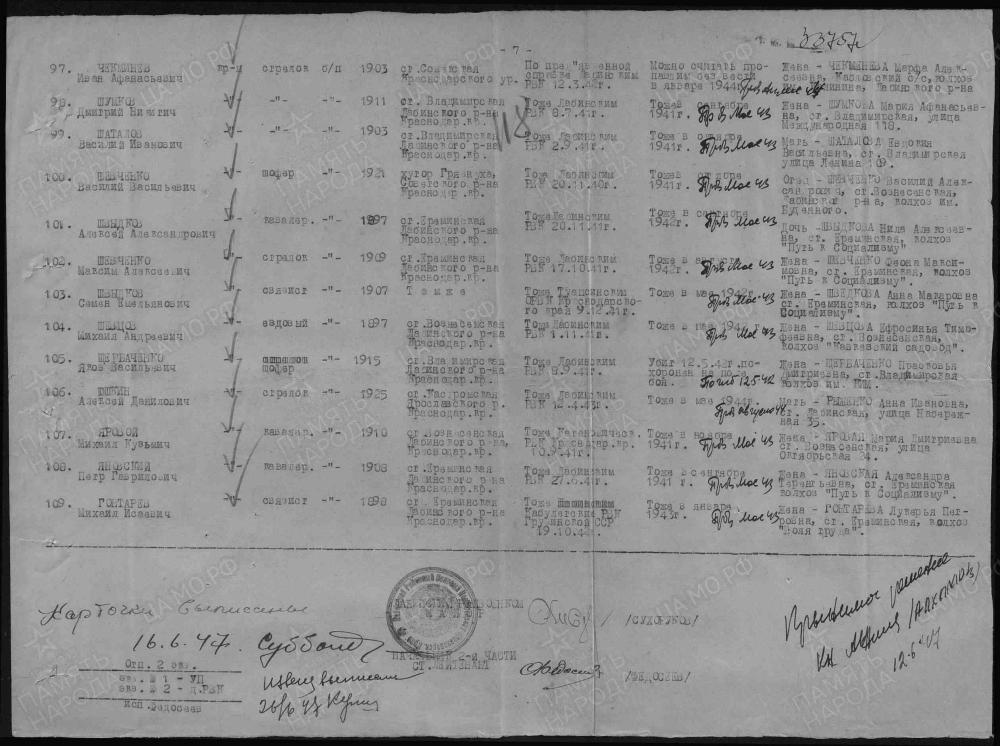 33757с
- 7 -
97. ЧЕКМЕНЕВ Иван Афанасьевич кр-ц стрелок б/п 1903 ст.Советская Краснодарского кр. По пред"явенной справке Лабинским РВК 12.3.42г. Можно считать пропавшим без вести в январе 1944г. Жена - ЧЕКМЕНЕВА Марфа Алексеевна, Каладжинский с/с, колхоз Лабинского р-на
98. ШУМКОВ Дмитрий Никитич -"- -"- 1911 ст. Владимирская Лабинского р-на Краснодар.кр. Тоже Лабинским РВК 8.7.41г. Тоже в 1941г. Пр.б/в Мае 43 Жена - ШУМКОВА Мария Афанасьевна, ст. Владимирская, улица Международная 118.
99. ШАТАЛОВ Василий Иванович -"- -"- 1903 ст.Владимирская Лабинского р-на Краснодар.кр. Тоже Лабинским РВК 2.9.41г. Тоже в октябре 1941г. Пр.б/в Мае 43 Мать - ШАТАЛОВА Евдокия Васильевна, ст. Владимирская улица Ленина 109.
118
100. ШЕВЧЕНКО Василий Васильевич шофер -"- 1921 хутор Грязнуха, Советского р-на Краснодар.кр. Тоже Лабинским РВК 20.11.40г. Тоже в октябре 1941г. Пр.б/в Мае 43 Отец - ШЕВЧЕНКО Василий Александрович, ст.Вознесенская, Лабинского р-на, колхоз им. Буденного.
101. ШВЫДКОВ Алексей Александрович кавалер. -"- 1897 ст.Ереминская Лабинского р-на Краснодар.кр. Тоже Лабинским РВК 20.11.41г. Тоже в сентябре 1942г. Пр.б/в Мае 43 Дочь - ШВЫДКОВА Нила Алексеевна, ст. Ереминская, колхоз "Путь к Социализму"
102. ШЕВЧЕНКО Максим Алексеевич стрелок -"- 1909 ст.Ереминская Лабинского р-на Краснодар.кр. Тоже Лабинским РВК 17.10.41г. Тоже в августе 1942г. Пр.б/в Мае 43 Жена - ШЕВЧЕНКО Феона Максимовна, ст. Ереминская, колхоз "Путь к Социализму".
103. ШВЫДКОВ Семен Емельянович связист -"- 1907 Т а м ж е Тоже Туапсинским ОРВК Краснодарского край 9.12.41г. Тоже в мае 1942г. Пр.б/в Мае 43 Жена - ШВЕДКОВА Анна Макаровна ст. Ереминская, колхоз "Путь к Социализму".
104. ШЕВЦОВ Михаил Андреевич ездовый -"- 1897 ст.Вознесенская Лабинского р-на Краснодар.кр. Тоже Лабинским РВК 1.11.41г. Тоже в мае Пр.б/в Мае 43 Жена - ШЕВЦОВА Ефросинья Тимофеевна, ст. Вознесенская, колхоз "Кавказский садовод".
105. ЩЕРБАЧЕНКО Яков Васильевич шофер -"- 1915 ст.Владимирская Лабинского р-на Краснодар.кр. Тоже Лабинским РВК 8.9.41г. Убит 12.5.42г. похоронен на поле бой. Погиб 12.5.42 Жена - ЩЕРБАЧЕНКО Прасковья Дмитриевна, ст.Владимирская колхоз им. КИМ.
106. ЮШКИН Алексей Данилович стрелок -"- 1925 ст.Костромская Ярославского р. Краснодар.кр. Тоже Лабинским РВК Тоже в мае 1944г. Мать - РЫЖЕНКО Анна Ивановна, ст. Лабинская, улица Набережная 35.
107. ЯРОВОЙ Михаил Кузьмич кавалер. -"- 1910 ст.Вознесенская Лабинского р-на, Краснодар.кр. Тоже Кагановическ. РВК Краснодар.кр. 10.9.41г. Тоже в ноябре 1941г. Пр.б/в Мае 43 Жена - ЯРОВАЯ Мария Дмитриевна ст. Вознесенская, улица Октябрьская 24.
108. ЯНОВСКИЙ Петр Гаврилович кавалер. -"- 1908 ст.Ереминская Лабинского р-на Краснодар.кр. Тоже Лабинским РВК 27.6.41г. Тоже в сентябре 1941 г. Пр.б/в Мае 43 Жена - ЯНОВСКАЯ Александра Терентьевна, ст. Ереминская колхоз "Путь к Социализму".
109. ГОНТАРЕВ Михаил Исаевич связист -"- 1898 ст. Ереминская Лабинского р-на Краснодар.кр. Тоже Кабулетским РВК Грузинской ССР 19.10.42г. Тоже в январе 1943г. Пр.б/в Мае 43 Жена - ГОНТАРЕВА Лукерья Петровна, ст. Ереминская, колхоз "Воля труда".
Карточки выписаны
16.6.47. Субботд
ЛАБИНСКИЙ РАЙВОЕНКОМ
/СУДОРУКОВ/
НАЧАЛЬНИК 2-й ЧАСТИ
СТ.ЛЕЙТЕНАНТ
/ФЕДОСЕЕВ/
Отп. 2 экз.
экз. № 1 - УП
экз. № 2 - д.РВК
исп.Федосеев
извещ выписаны
26/6 47
12-6-47